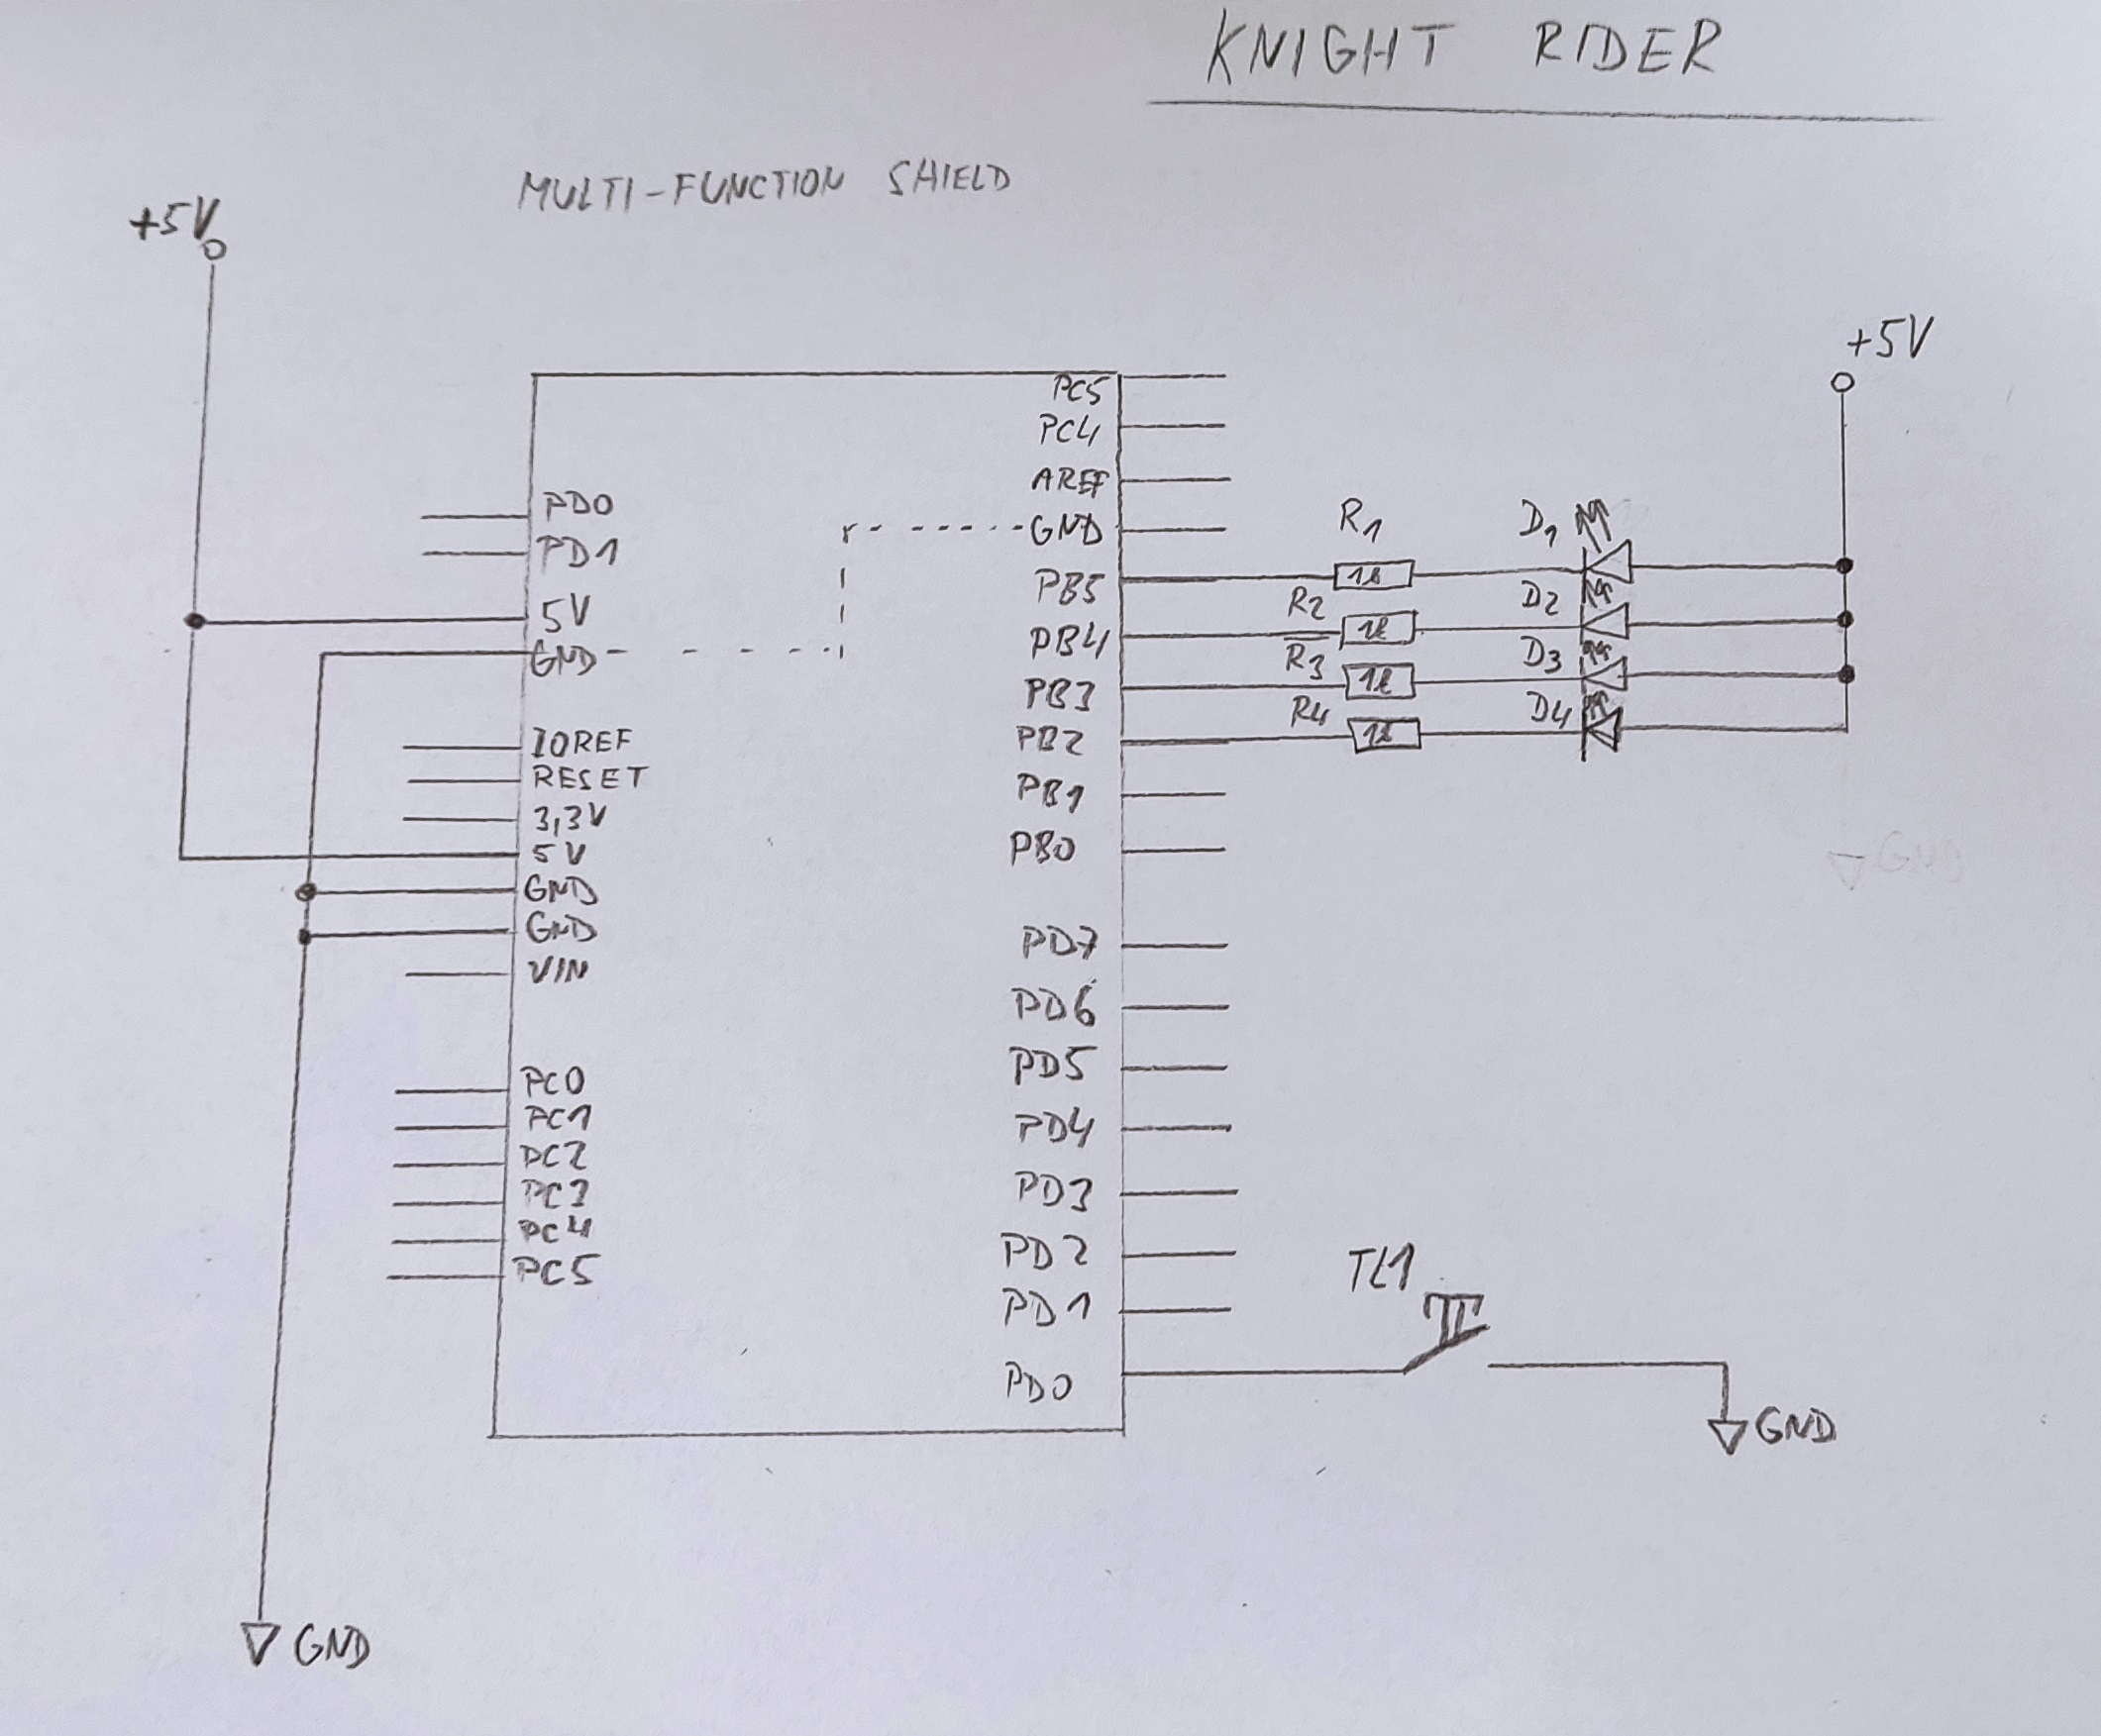 KNIGHT RIDER
MULTI-FUNCTION SHIELD
+5V
+5V
PD0
PD1
5V
GND
IOREF
RESET
3,3V
5V
GND
GND
VIN
PC0
PC1
PC2
PC3
PC4
PC5
GND
PC5
PC4
AREF
GND
PB5
PB4
PB3
PB2
PB1
PB0
PD7
PD6
PD5
PD4
PD3
PD2
PD1
PD0
R1
1k
D1
R2
1k
D2
R3
1k
D3
R4
1k
D4
GND
TL1
GND